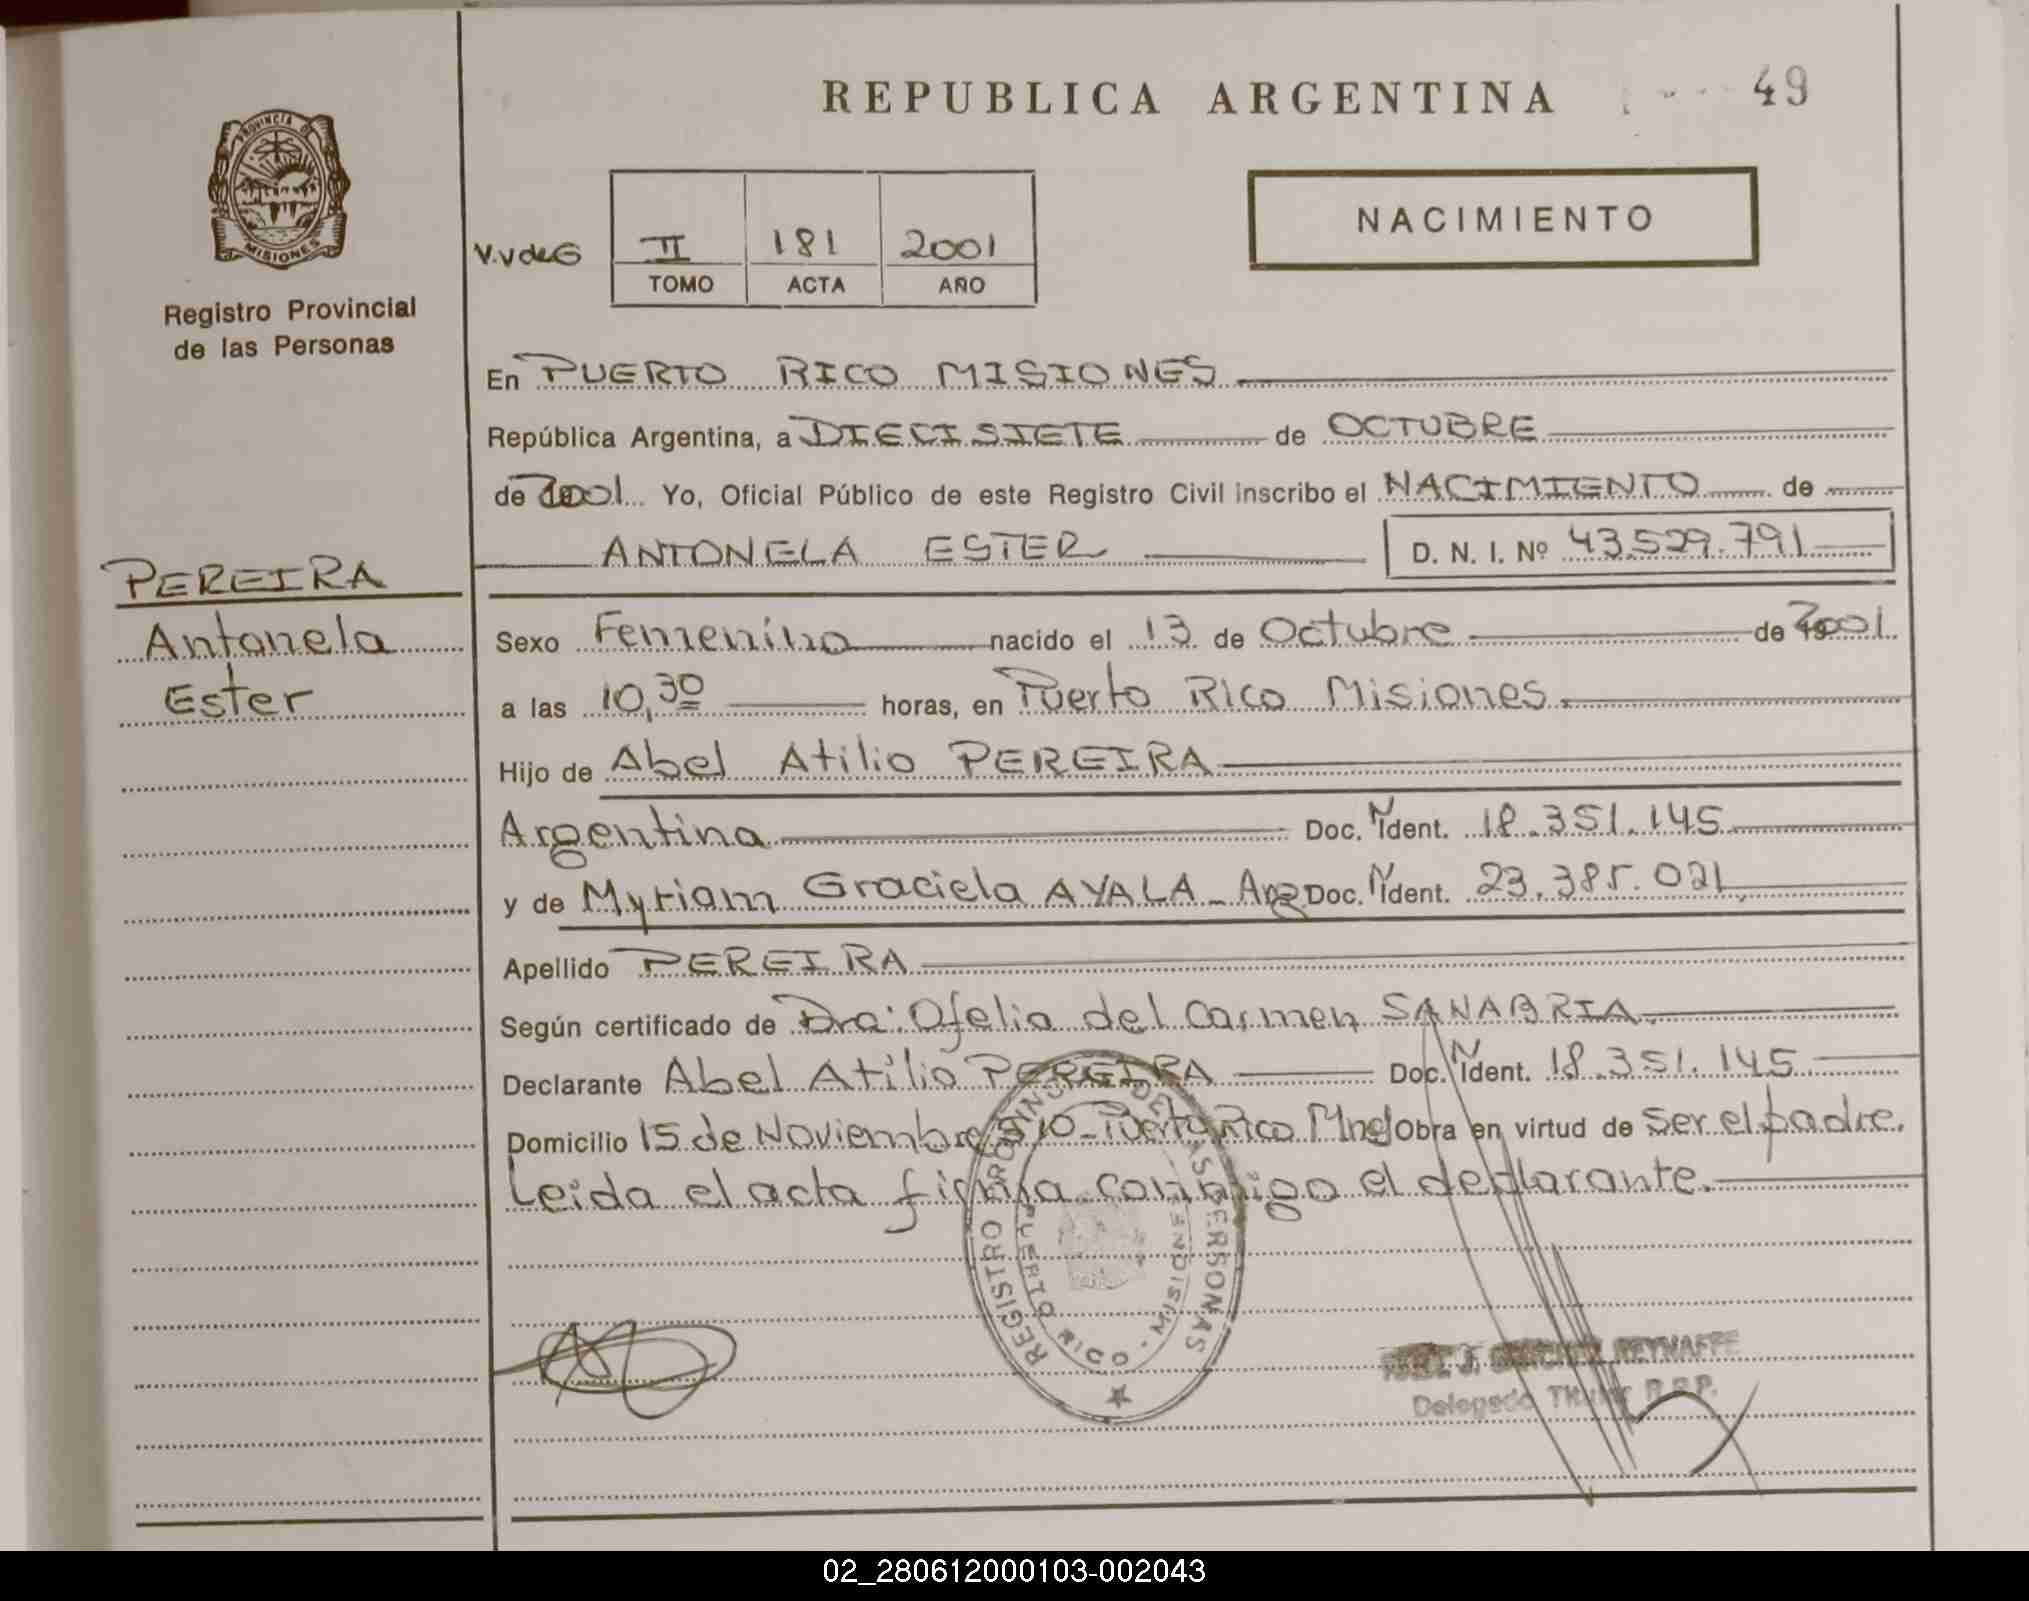 REPUBLICA ARGENTINA 49
PROVINCIA D MISIONES
Registro Provincial
de las Personas
V.VdeG II 181 2001
TOMO ACTA AÑO
NACIMIENTO
En PUERTO RICO MISIONES
República Argentina, a DIECISIETE de OCTUBRE
de 2001 Yo, Oficial Público de este Registro Civil inscribo el NACIMIENTO de
ANTONELA ESTER D. N. I. Nº 43.529.791
PEREIRA
Antonela
Ester
Sexo Femenino nacido el 13 de Octubre de 2001
a las 10,30 horas, en Puerto Rico Misiones.
Hijo de Abel Atilio PEREIRA
Argentina Doc. N Ident. 18.351.145
y de Myriam Graciela AYALA - Arg Doc. N Ident. 23.385.021
Apellido PEREIRA
Según certificado de Dra: Ofelia del Carmen SANABRIA.
Declarante Abel Atilio PEREIRA Doc. N Ident. 18.351.145
Domicilio 15 de Noviembre 910 - Puerto Rico Mnes Obra en virtud de ser el padre.
Leida el acta firma conmigo el declarante.
REGISTRO PROVINCIAL DE LAS PERSONAS
PUERTO RICO - MISIONES
J. REYNAFFE
Delegado Titular R.P.P.
02_280612000103-002043